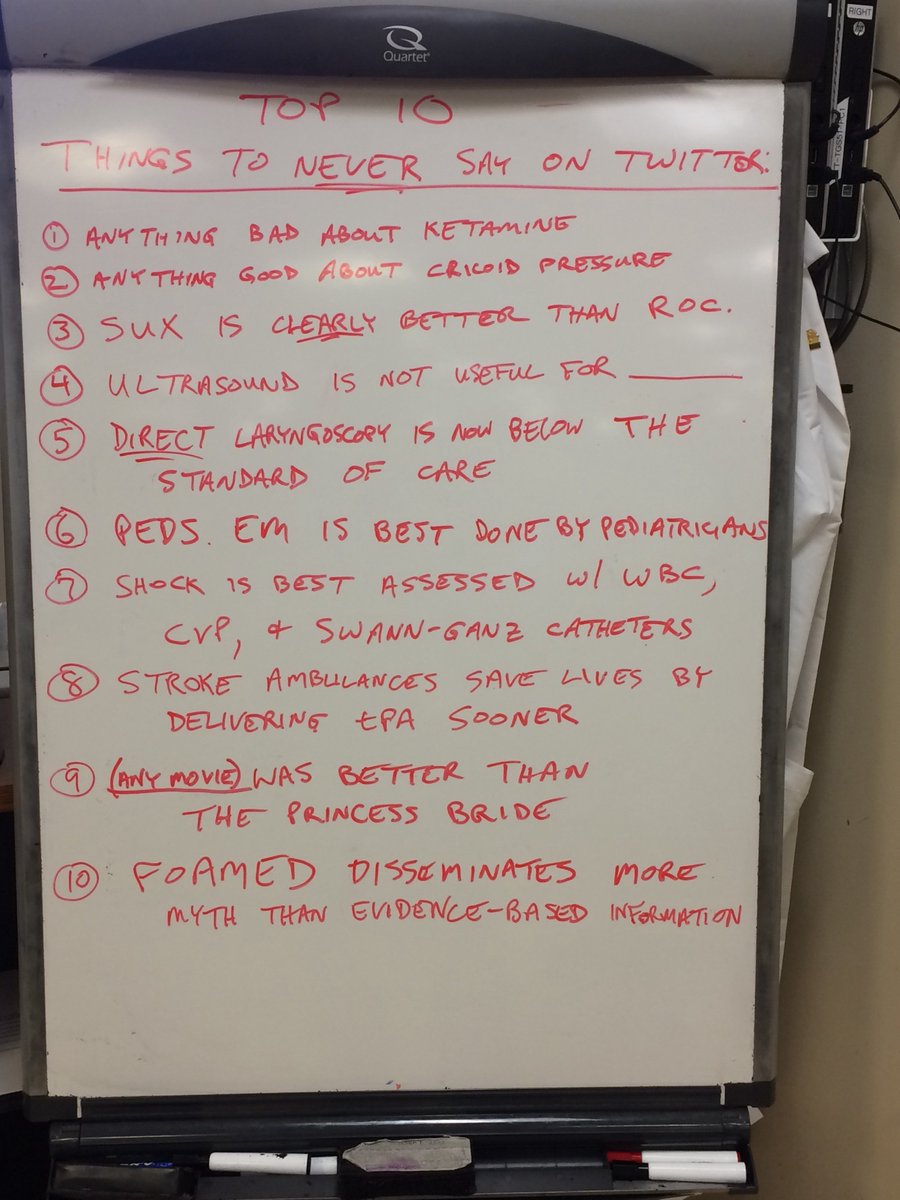 RIGHT
Quartet
TOP 10
THINGS TO NEVER SAY ON TWITTER:
① ANYTHING BAD ABOUT KETAMINE
② ANYTHING GOOD ABOUT CRICOID PRESSURE
③ SUX IS CLEARLY BETTER THAN ROC.
④ ULTRASOUND IS NOT USEFUL FOR ________
⑤ DIRECT LARYNGOSCOPY IS NOW BELOW THE
STANDARD OF CARE
⑥ PEDS. EM IS BEST DONE BY PEDIATRICIANS
⑦ SHOCK IS BEST ASSESSED W/ WBC,
CVP, & SWANN-GANZ CATHETERS
⑧ STROKE AMBULANCES SAVE LIVES BY
DELIVERING tPA SOONER
⑨ (ANY MOVIE) WAS BETTER THAN
THE PRINCESS BRIDE
⑩ FOAMED DISSEMINATES MORE
MYTH THAN EVIDENCE-BASED INFORMATION